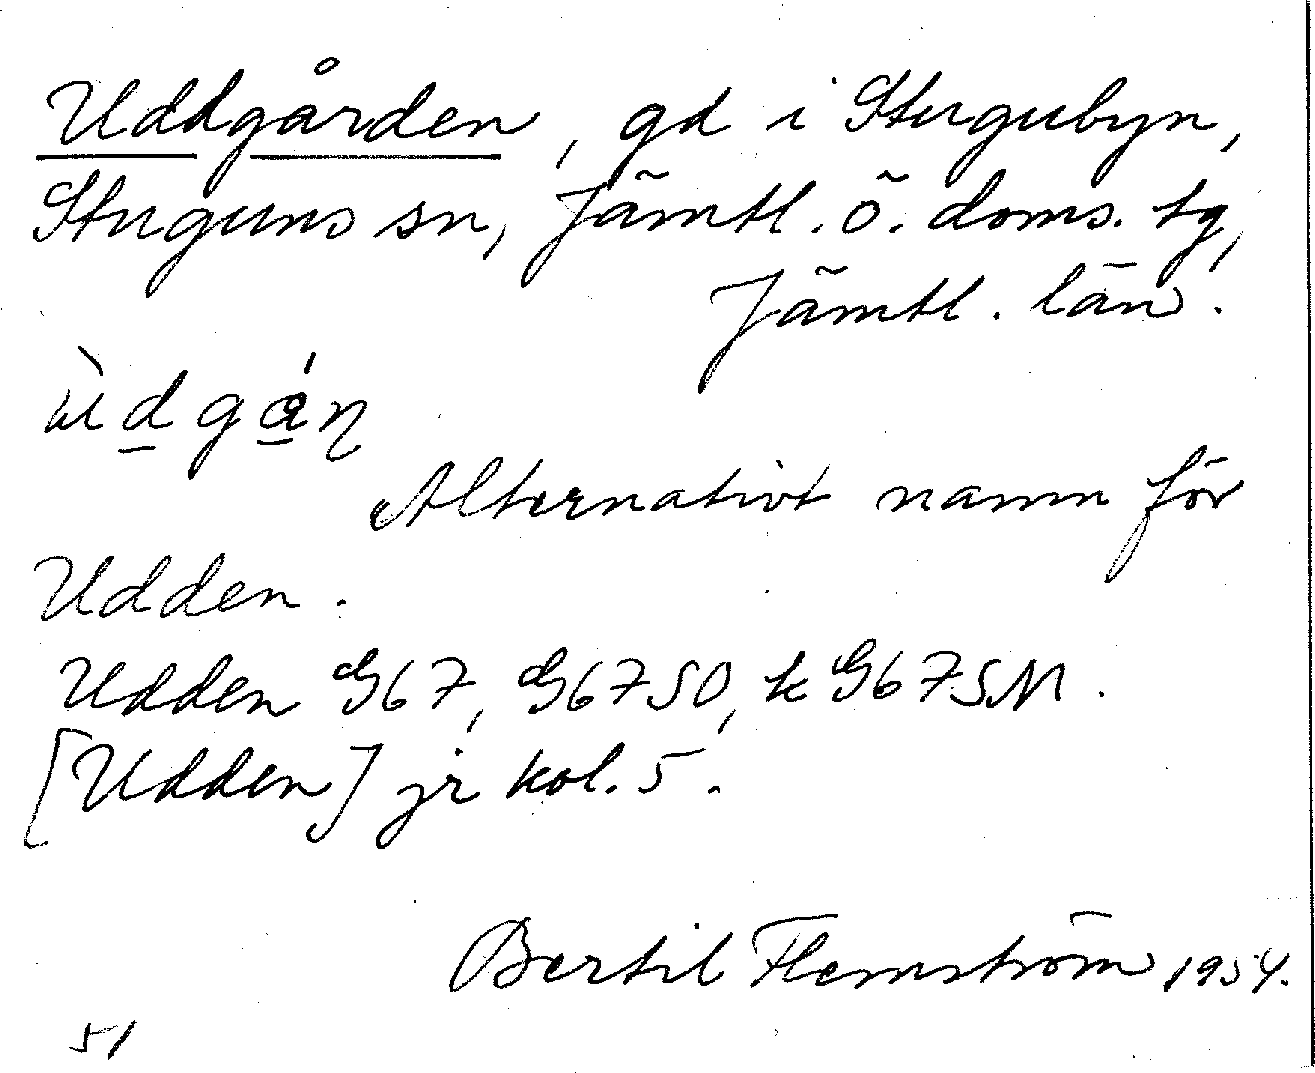 Uddgården, gd i Stugubyn,
Stuguns sn, Jämtl. ö. doms. tg,
Jämtl. län.
Alternativt namn för
Udden.
Udden G67, G67SO, k G67SM.
[Udden] jr kol. 5.
Bertil Flemström 1954.
51